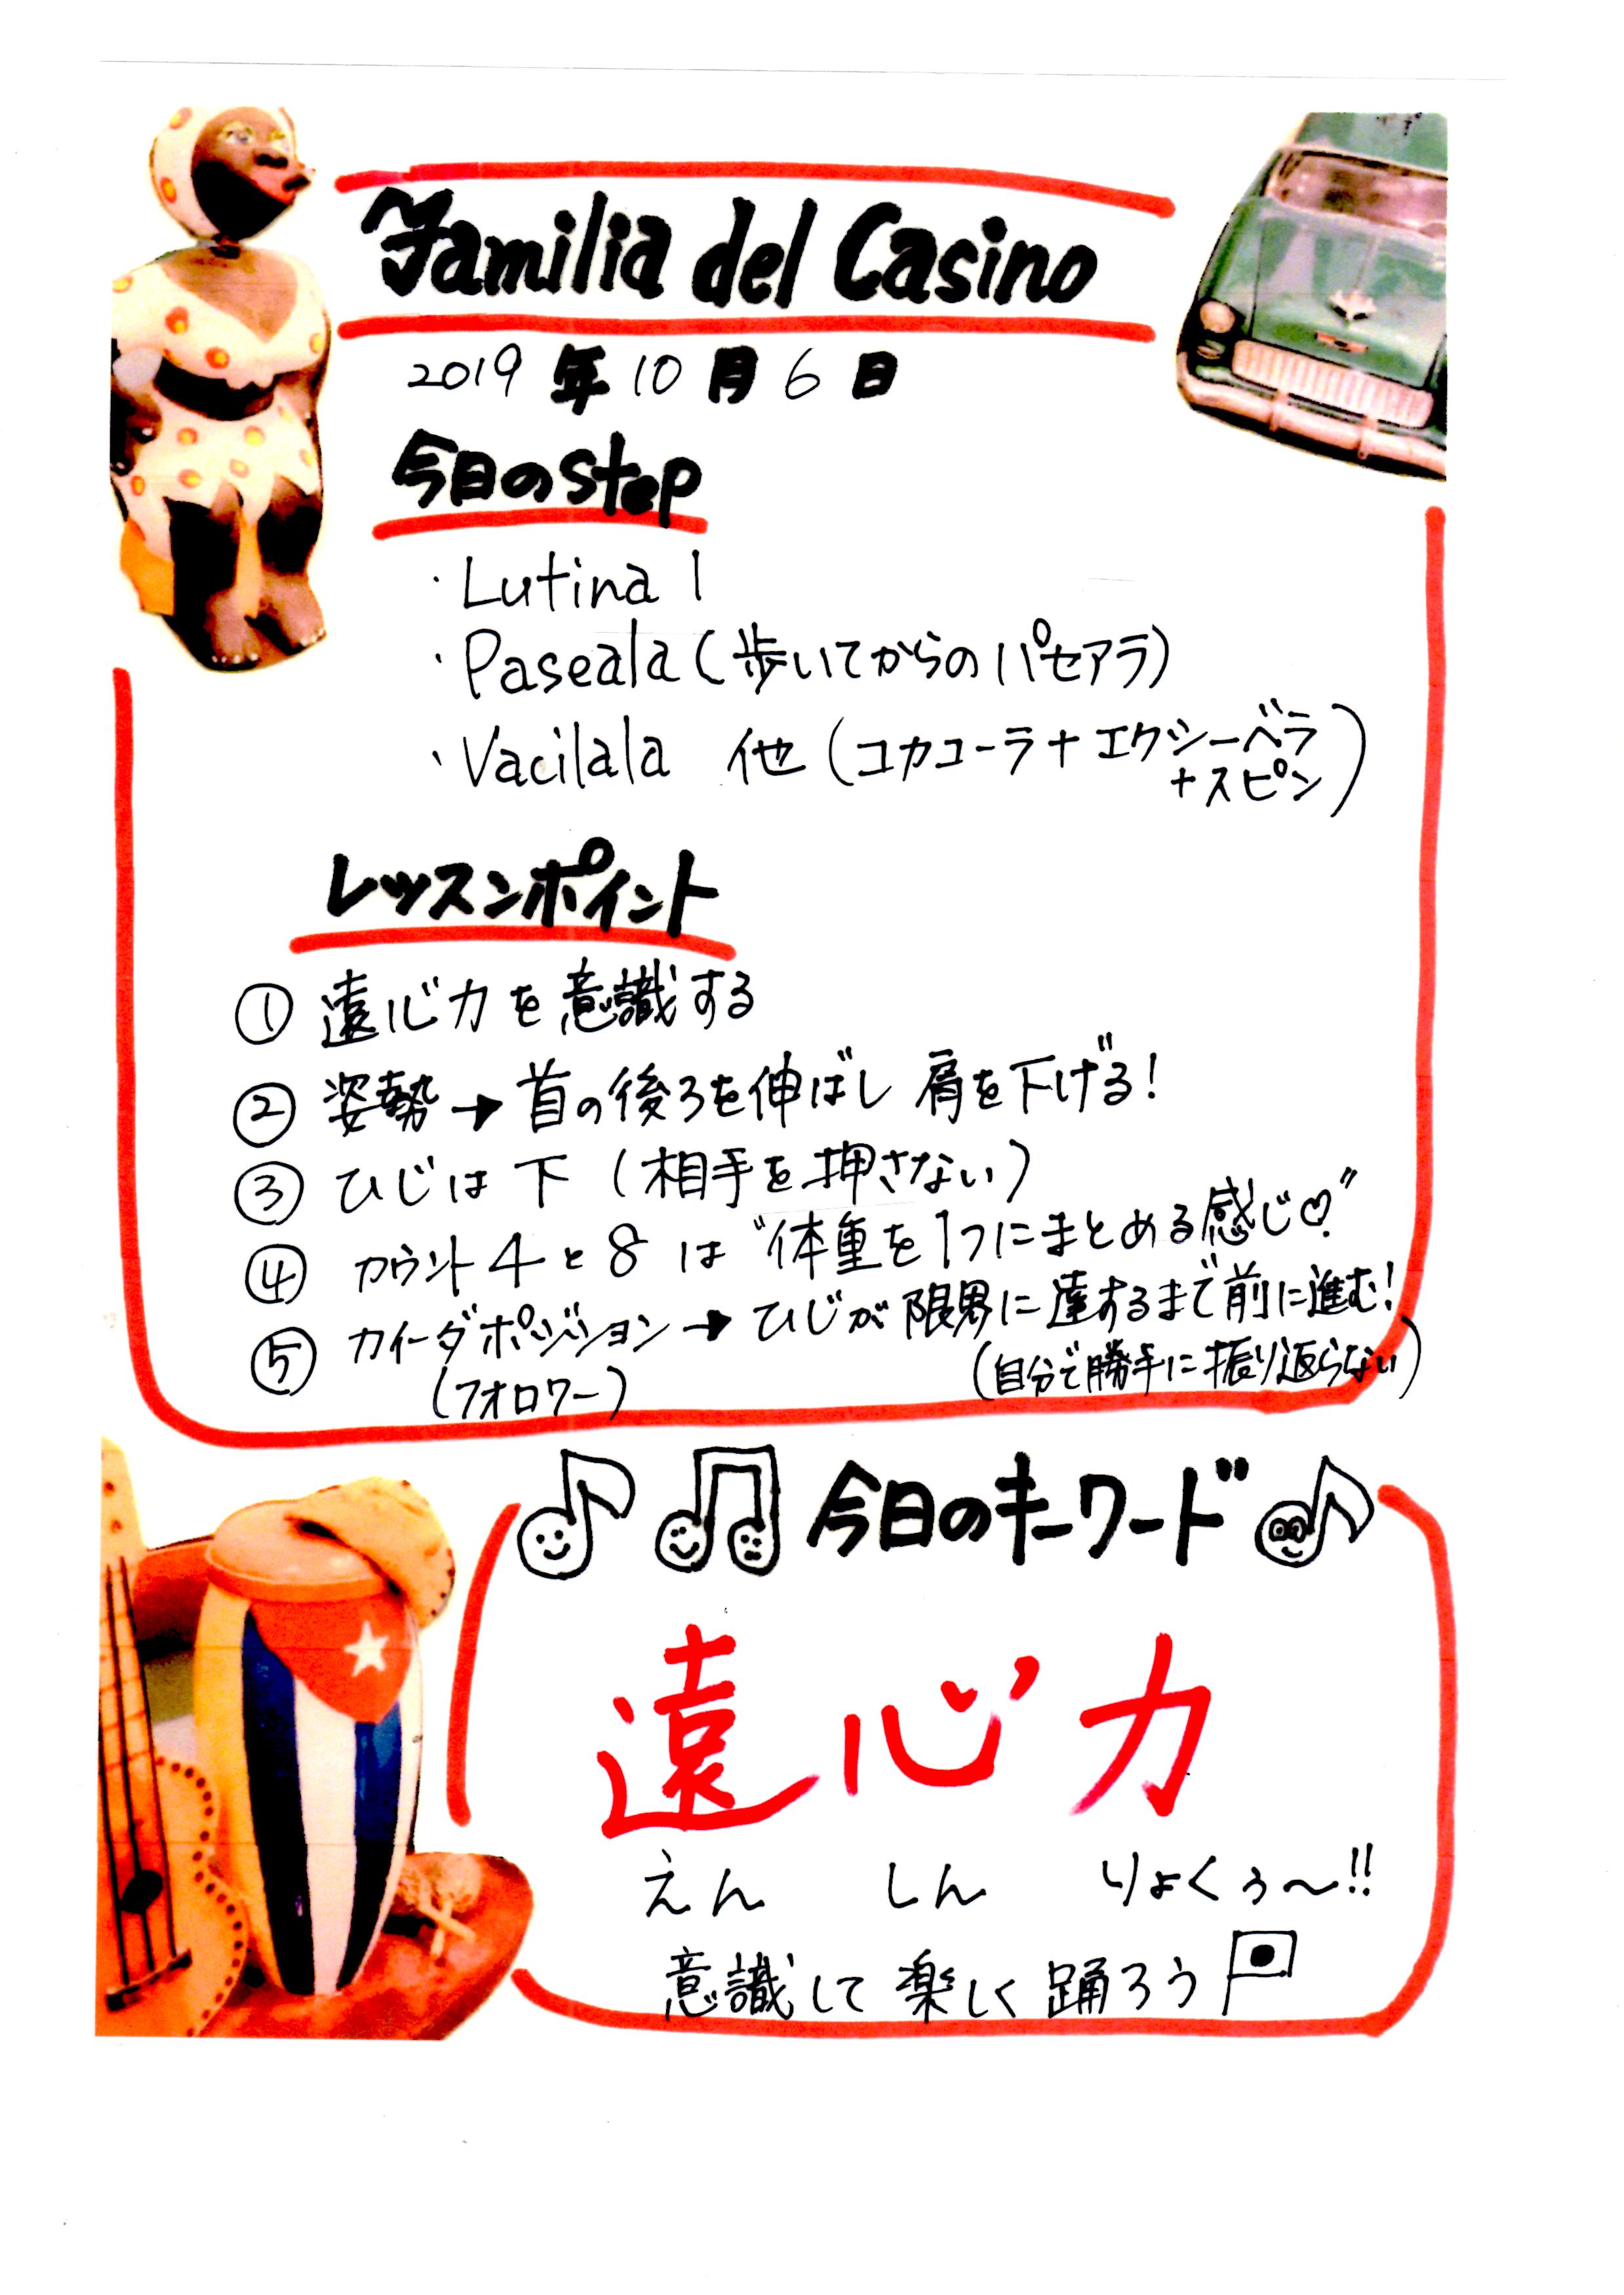 Familia del Casino
2019年10月6日
今日のstep
・Lutina 1
・Paseala(歩いてからのパセアラ)
・Vacilala 他(コカコーラ+エクシーベラ
+スピン)
レッスンポイント
① 遠心力を意識する
② 姿勢→首の後ろを伸ばし 肩を下げる!
③ ひじは下(相手を押さない)
④ カウント4と8は"体重を1つにまとめる感じ♡"
⑤ カイーダポジション→ひじが限界に達するまで前に進む!
(フォロワー) (自分で勝手に振り返らない)
今日のキーワード
遠心力
えん しん りょくぅ〜!!
意識して楽しく踊ろう